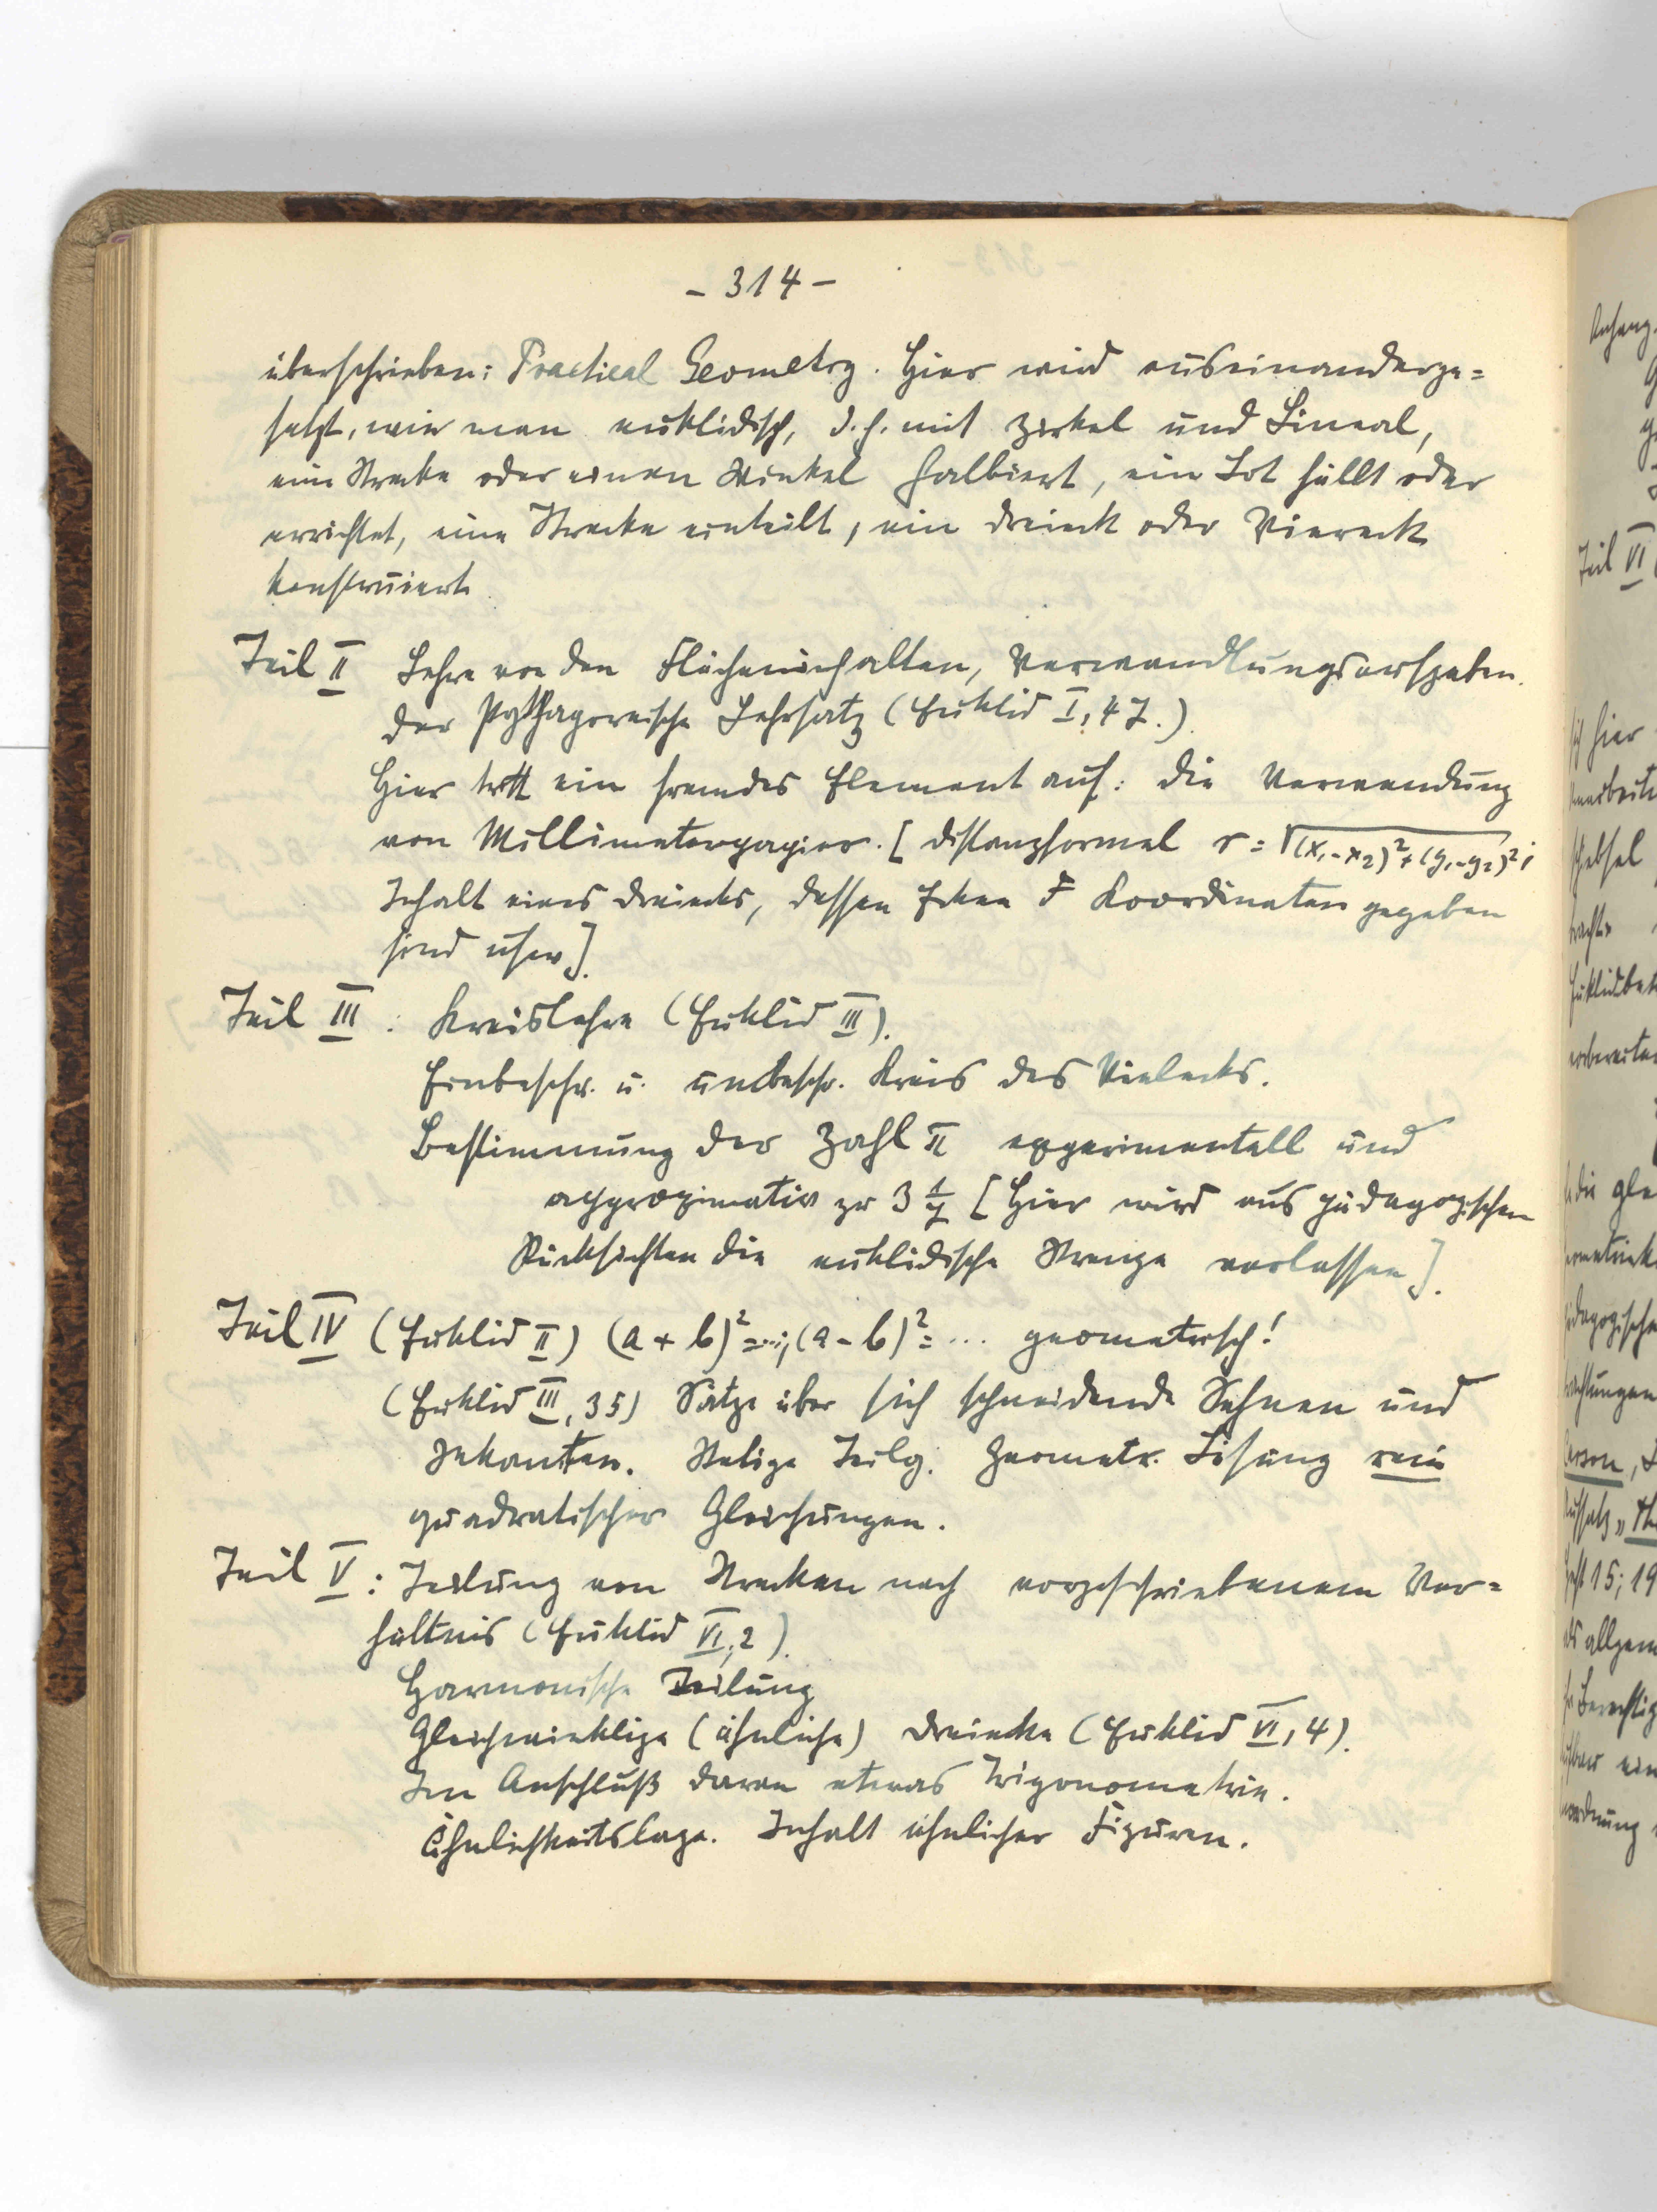 - 314 -
überschrieben: Practical Geometry. Hier wird auseinanderge=
setzt, wie man euklidisch, d.h. mit Zirkel und Lineal,
eine Strecke oder einen Winkel halbiert, ein Lot fällt oder
errichtet, eine Strecke einteilt, ein Dreieck oder Viereck
konstruiert
Teil II Lehre von den Flächeninhalten, Verwandlungsaufgaben.
Der Pythagoreische Lehrsatz (Euklid I, 47.).
Hier tritt ein fremdes Element auf: die Verwendung
von Millimeterpapier. [Distanzformel r = √(x₁-x₂)²+(y₁-y₂)²;
Inhalt eines Dreiecks, dessen Ecken Koordinaten gegeben
sind usw].
Teil III : Kreislehre (Euklid III).
Einbeschr. u. umbeschr. Kreis des Vielecks.
Bestimmung der Zahl π experimentell und
approximativ zu 3 1/7 [Hier wird aus pädagogischen
Rücksichten die euklidische Strenge verlassen].
Teil IV (Euklid II) (a + b)² = ...; (a - b)² = ... geometrisch!
(Euklid III, 35) Sätze über sich schneidende Sehnen und
Sekanten. Stetige Teilg. Geometr. Lösung rein
quadratischer Gleichungen.
Teil V : Teilung von Strecken nach vorgeschriebenem Ver=
hältnis (Euklid VI, 2).
Harmonische Teilung
Gleichwinklige (ähnliche) Dreiecke (Euklid VI, 4).
Im Anschluß daran etwas Trigonometrie.
Ähnlichkeitslage. Inhalt ähnlicher Figuren.
Anhang
Teil VI
hier